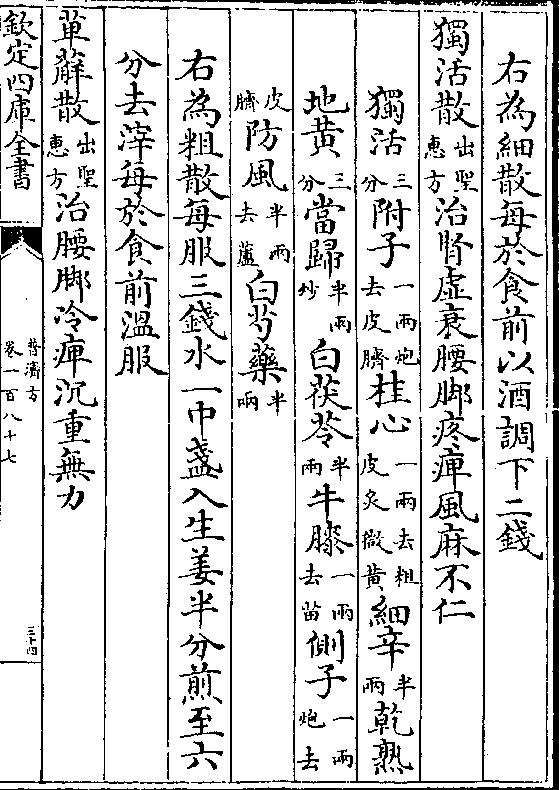 右為細散每於食前以酒調下二錢
獨活散出聖惠方治腎虛衰腰脚疼痺風麻不仁
獨活三分附子一兩炮去皮臍桂心一兩去粗皮炙微黄細辛半兩乾熟
地黄三分當歸半兩炒白茯苓半兩牛膝一兩去苗側子一兩炮去
皮臍防風半兩去蘆白芍藥半兩
右為粗散每服三錢水一中盞入生姜半分煎至六
分去滓每於食前溫服
萆薢散出聖惠方治腰脚冷痺沉重無力
欽定四庫全書
普濟方
卷一百八十七
三十四